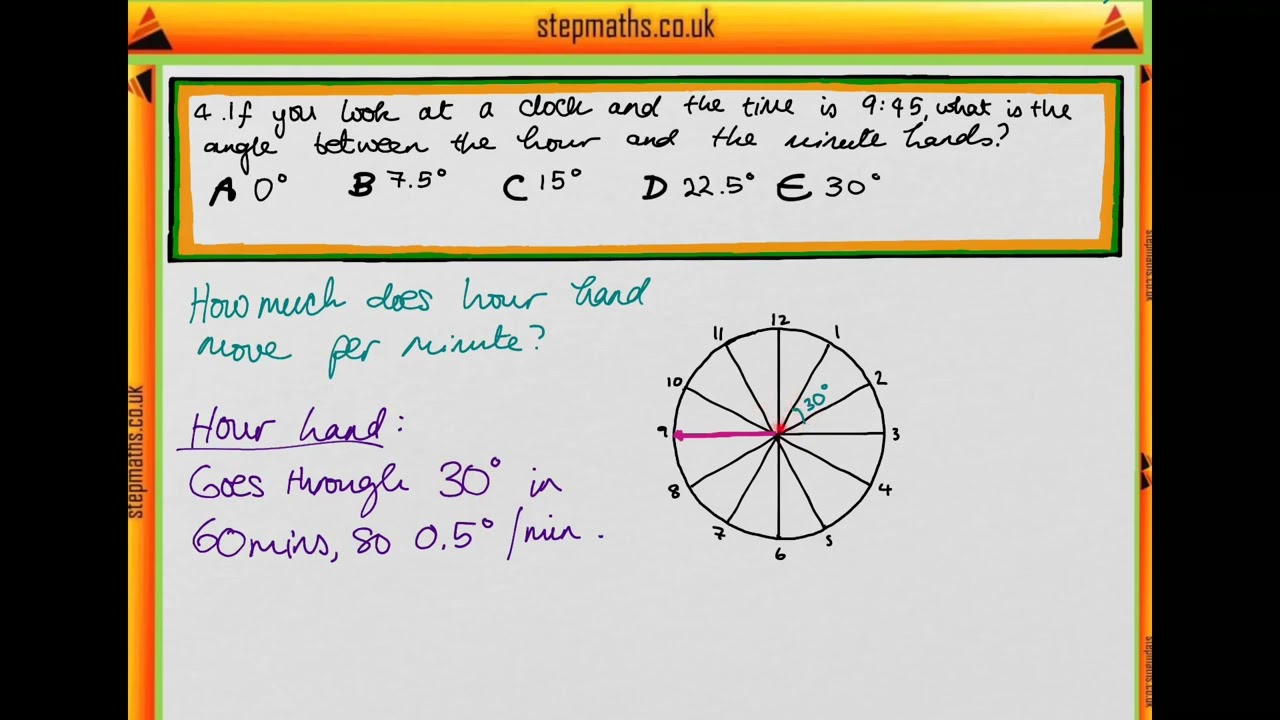 stepmaths.co.uk
4. If you look at a clock and the time is 9:45, what is the
angle between the hour and the minute hands?
A 0° B 7.5° C 15° D 22.5° E 30°
How much does hour hand
move per minute?
Hour hand:
Goes through 30° in
60mins, so 0.5°/min.
12
1
2
3
4
5
6
7
8
9
10
11
30°
stepmaths.co.uk
stepmaths.co.uk
stepmaths.co.uk